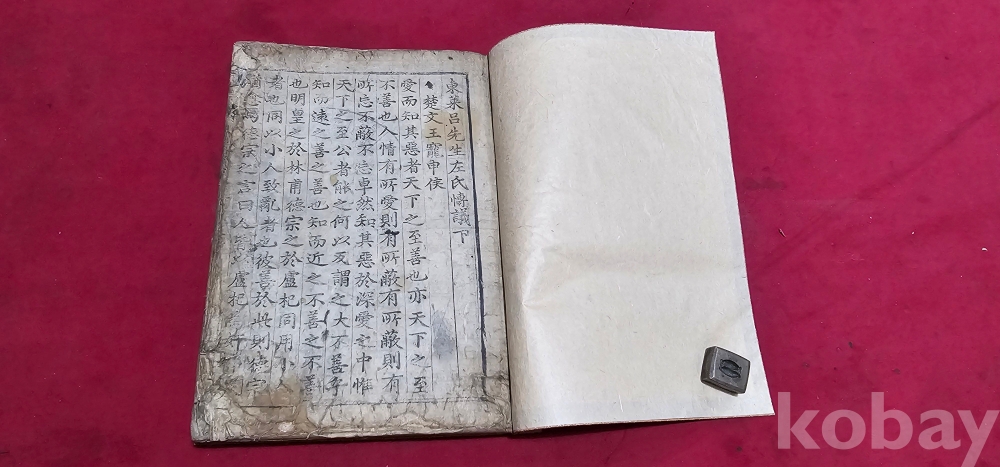 東萊吕先生左氏愽議下
楚文王寵申侯
愛而知其惡者天下之至善也亦天下之至
不善也人情有所愛則有所蔽有所蔽則有
所忘不蔽不忘卓然知其惡於深愛之中惟
天下之至公者能之何以反謂之大不善乎
知而遠之善之善也知而近之不善之不善
也明皇之於林甫德宗之於盧杞同用小人
者也同以小人致亂者也彼善於此則德宗
德宗之言曰人 盧杞
kobay